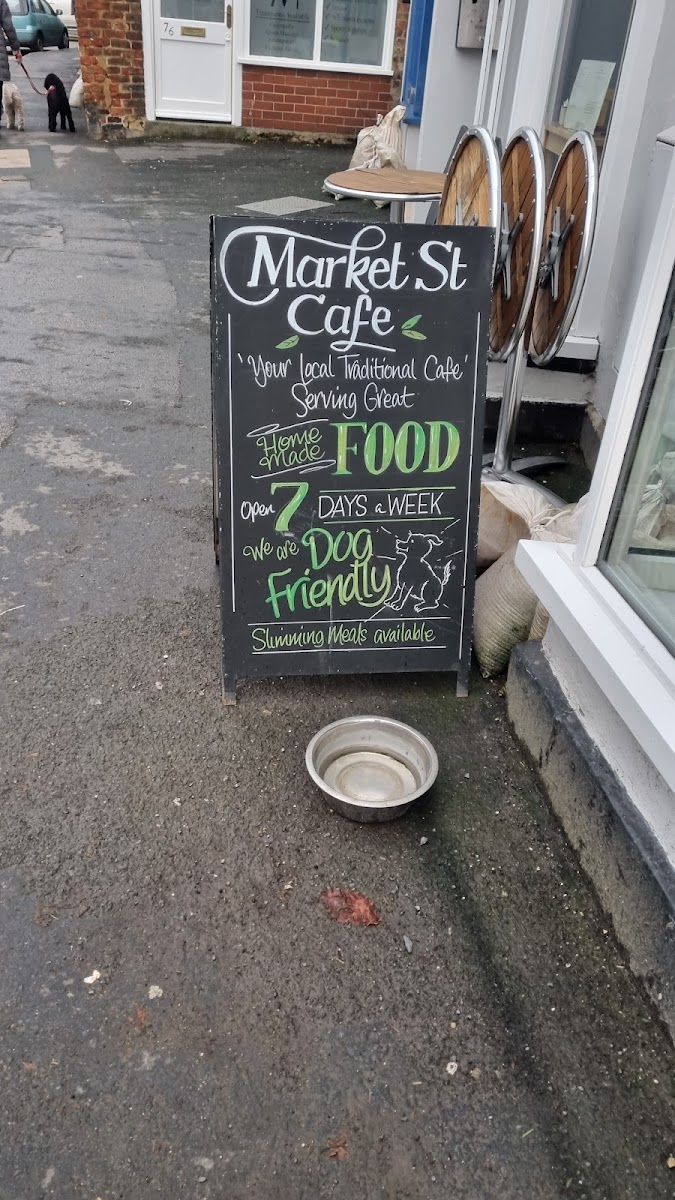 76
Market St
Cafe
'Your local Traditional Cafe'
Serving Great
Home made FOOD
Open 7 DAYS a WEEK
We are Dog
Friendly
Slimming Meals available